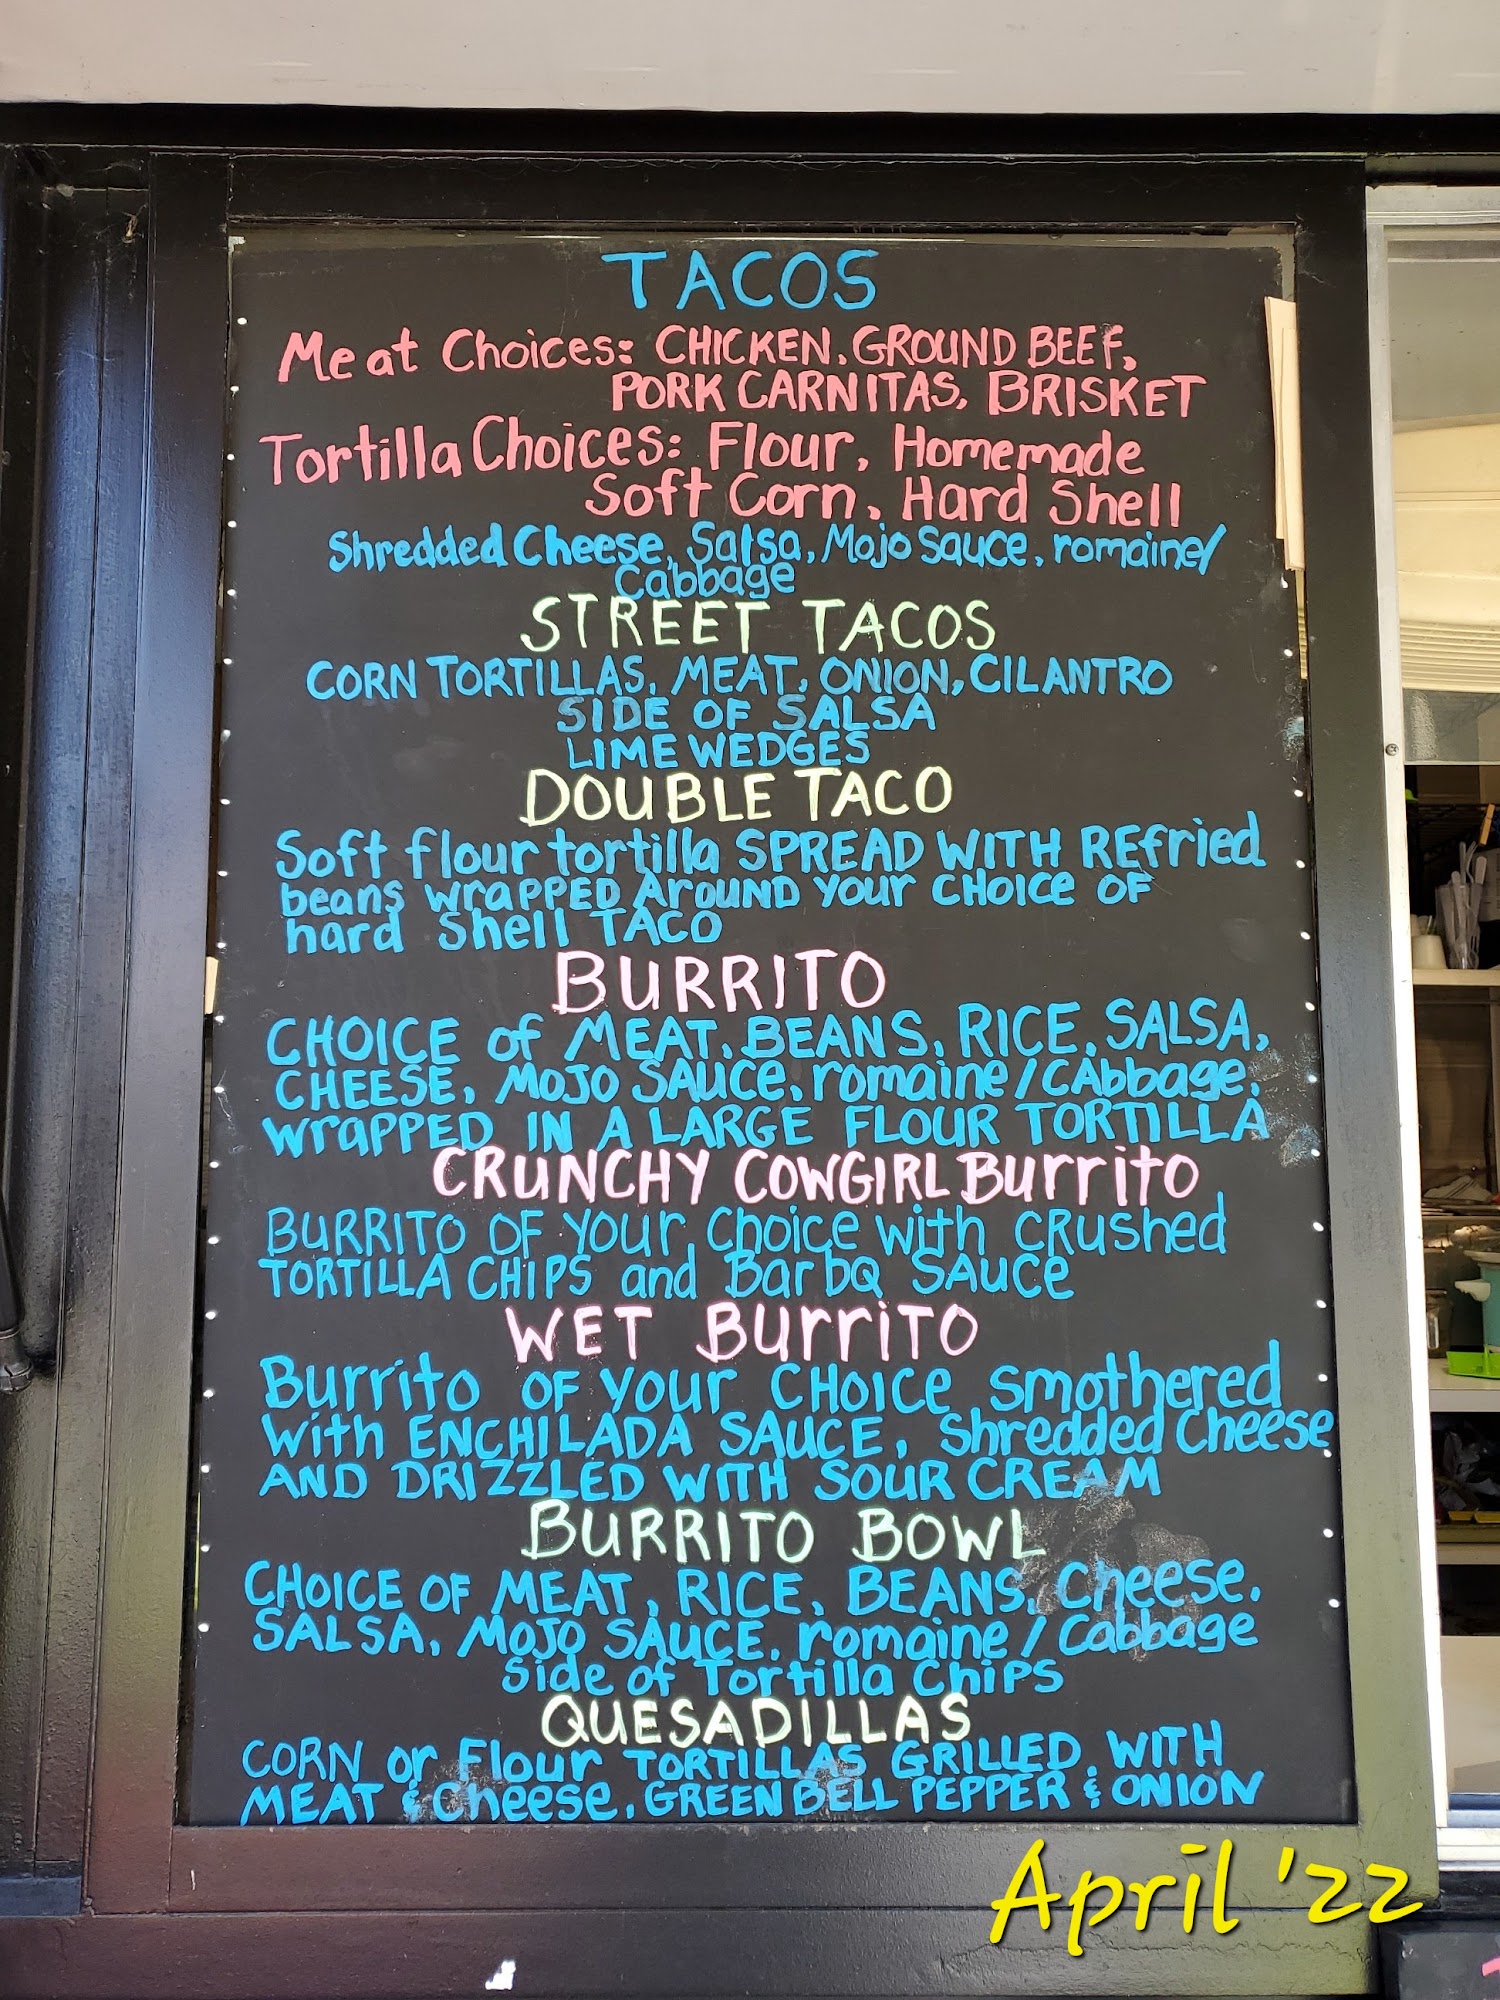 TACOS
Meat Choices: CHICKEN, GROUND BEEF,
PORK CARNITAS, BRISKET
Tortilla Choices: Flour, Homemade
Soft Corn, Hard Shell
Shredded Cheese, Salsa, Mojo Sauce, romaine/
Cabbage
STREET TACOS
CORN TORTILLAS, MEAT, ONION, CILANTRO
SIDE OF SALSA
LIME WEDGES
DOUBLE TACO
Soft flour tortilla SPREAD WITH REfried
beans wrAPPED AROUND YOUR CHOICE OF
hard Shell TACO
BURRITO
CHOICE of MEAT, BEANS, RICE, SALSA,
CHEESE, MOJO SAUCE, romaine/CAbbage,
WrAPPED IN A LARGE FLOUR TORTILLA
CRUNCHY COWGIRL Burrito
BURRITO OF YOUR Choice with CRushed
TORTILLA CHIPS and BarbQ SAUCe
WET BurriTO
Burrito OF YOUR CHOICE smothered
With ENCHILADA SAUCE, Shredded Cheese
AND DRIZZLED WITH SOUR CREAM
BURRITO BOWL
CHOICE OF MEAT, RICE, BEANS, Cheese,
SALSA, MOJO SAUCE, romaine / Cabbage
Side of Tortilla ChiPS
QUESADILLAS
CORN or Flour TORTILLAS GRILLED, WITH
MEAT & Cheese, GREEN BELL PEPPER & ONION
April '22